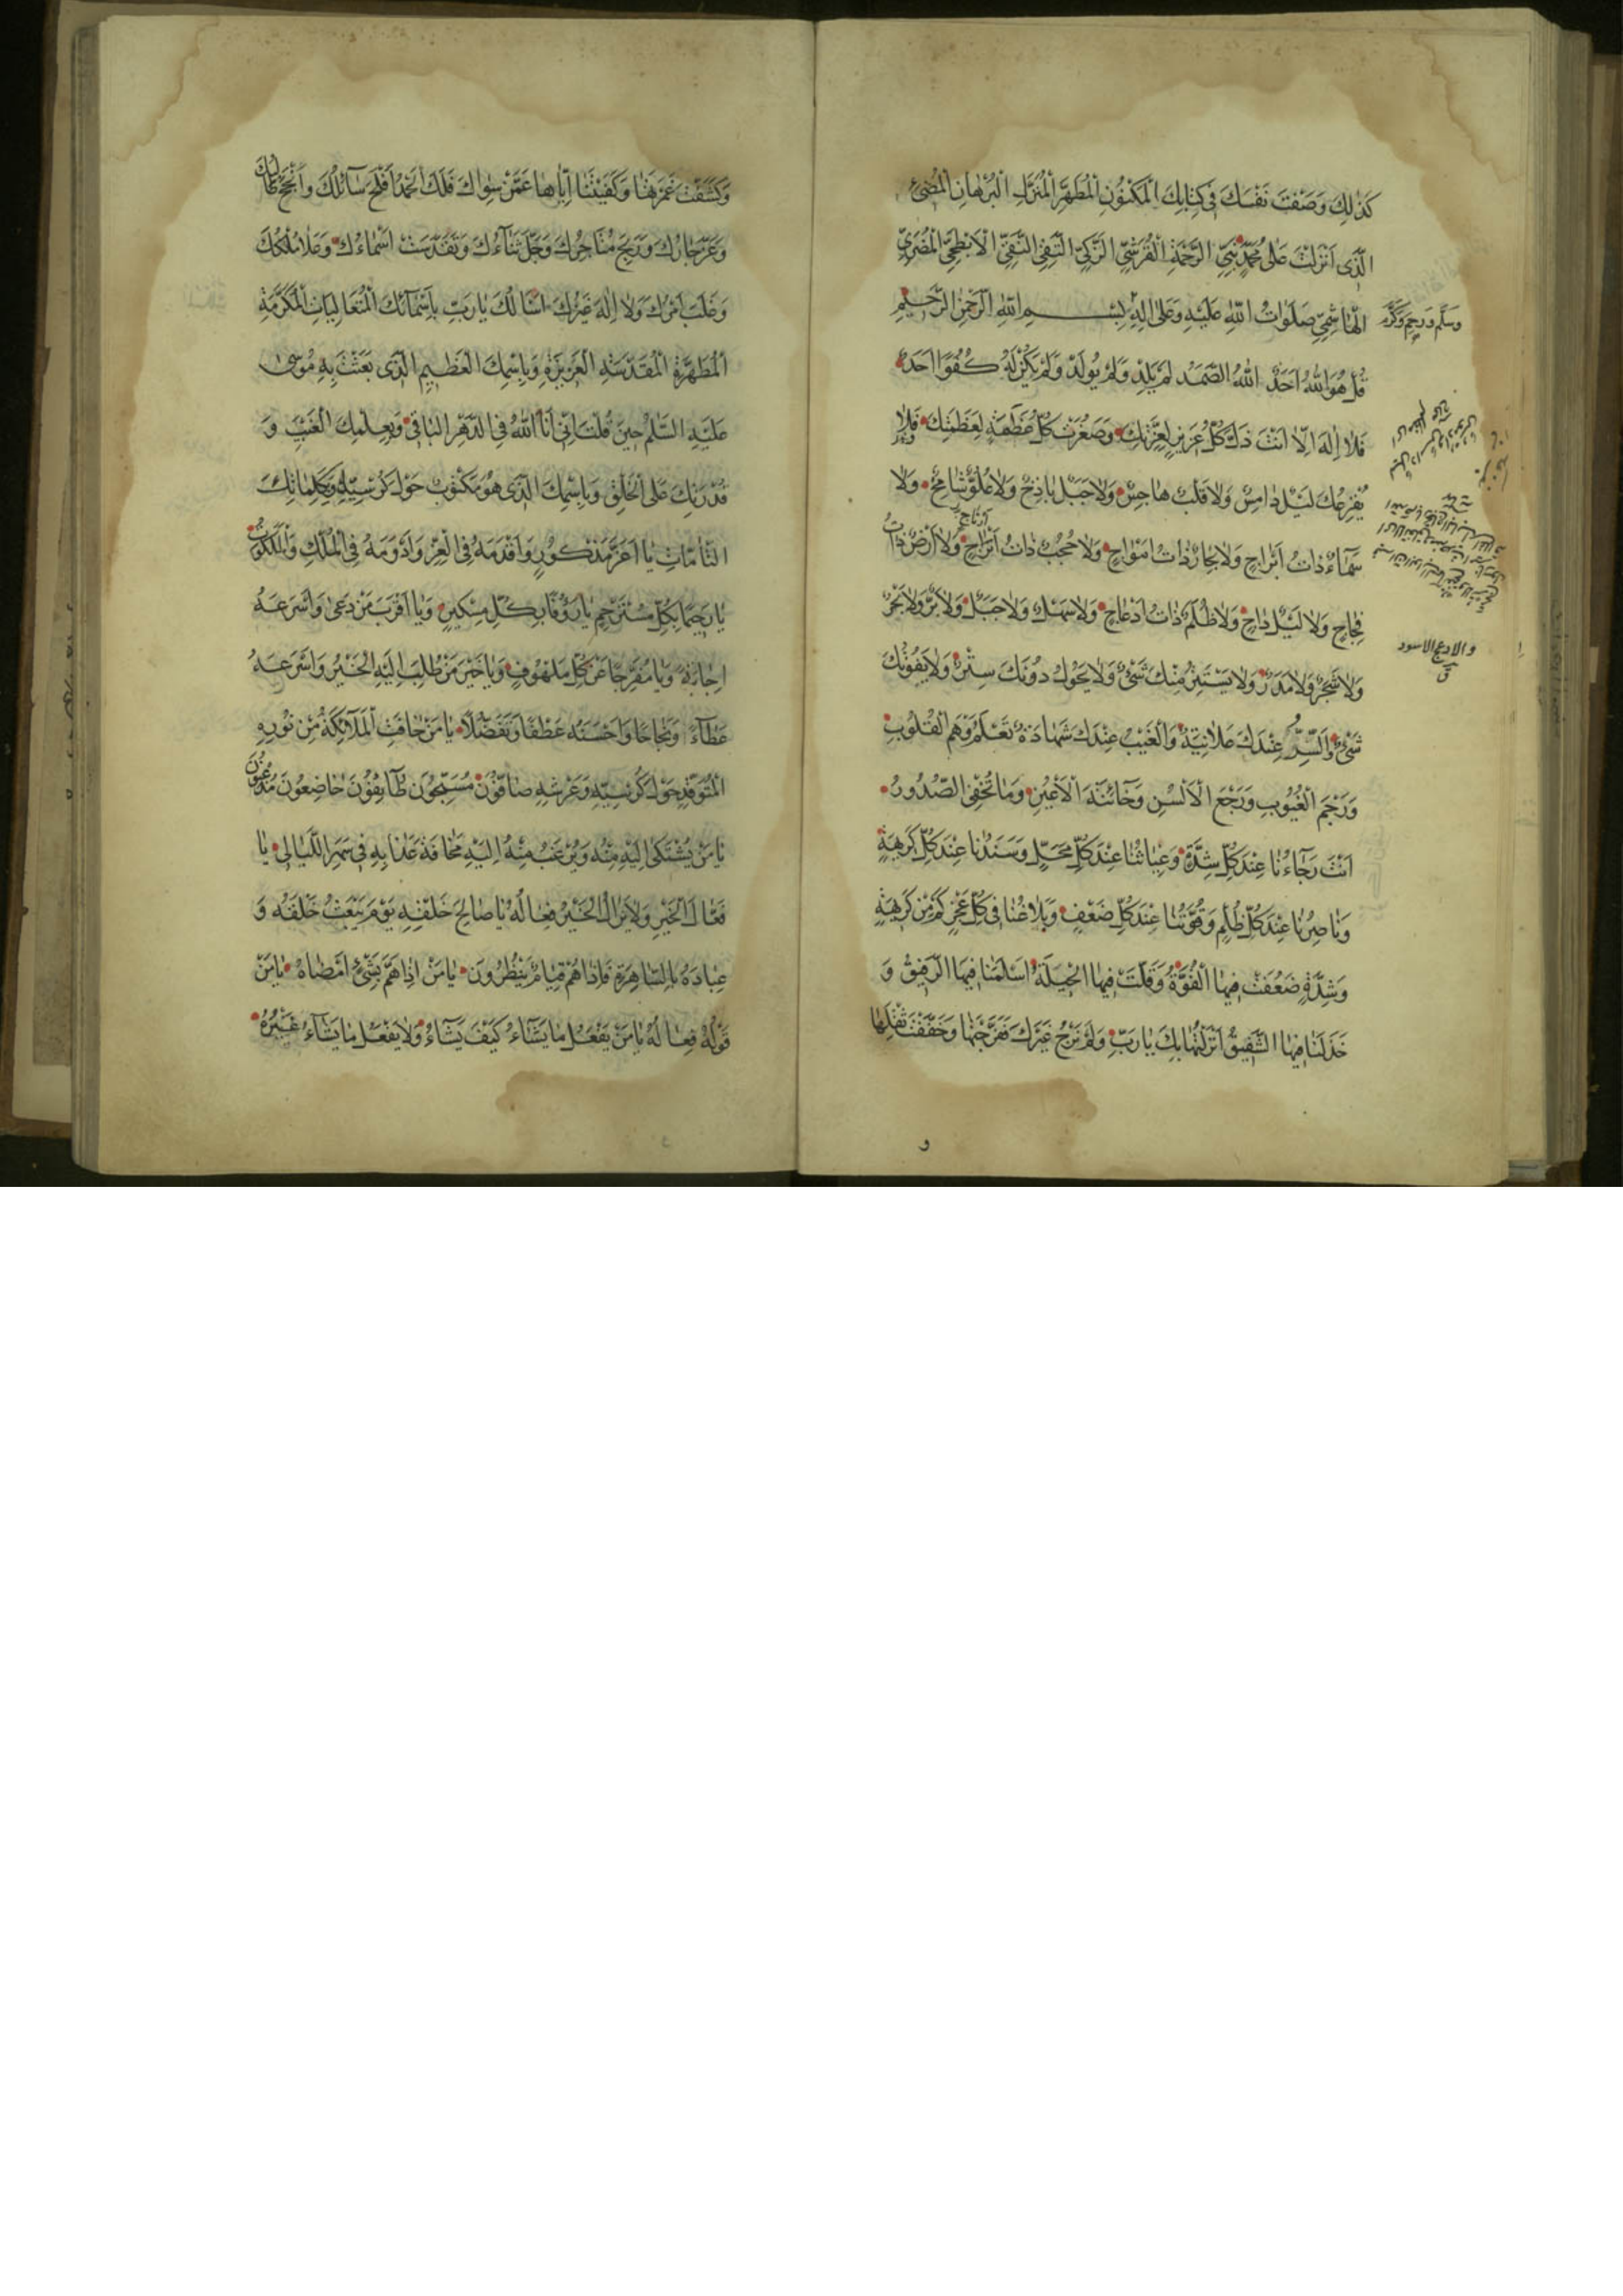 كَذٰلِكَ وَصَفْتَ نَفْسَكَ فِي كِتٰابِكَ الْمَكْنُونِ الْمُطَهَّرِ الْمُنْزَلِ الْبُرْهٰانِ الْمُضِيءِ
الَّذِى اَنْزَلْتَ عَلٰى مُحَمَّدٍ نَبِيِّ الرَّحْمَةِ الْقُرَشِيِّ الزَّكِيِّ التَّقِيِّ النَّقِيِّ الْاَبْطَحِيِّ الْمُضَرِيِّ
الْهٰاشِمِيِّ صَلَوٰاتُ اللّٰهِ عَلَيْهِ وَعَلٰى اٰلِهِ بِسْمِ اللّٰهِ الرَّحْمٰنِ الرَّحِيمِ
وسلم ورحم وكرم
قُلْ هُوَ اللّٰهُ اَحَدٌ اللّٰهُ الصَّمَدُ لَمْ يَلِدْ وَلَمْ يُولَدْ وَلَمْ يَكُنْ لَهُ كُفُوًا اَحَدٌ
فَلٰا اِلٰهَ اِلّٰا اَنْتَ ذَلَّ كُلُّ عَزِيزٍ لِعِزَّتِكَ وَصَغُرَتْ كُلُّ عَظَمَةٍ لِعَظَمَتِكَ فَلٰا
يُفْزِعُكَ لَيْلٌ دٰامِسٌ وَلٰا قَلْبٌ هٰاجِسٌ وَلٰا جَبَلٌ بٰاذِخٌ وَلٰا عُلُوٌّ شٰامِخٌ وَلٰا
سَمٰاءٌ ذٰاتُ اَبْرٰاجٍ وَلٰا بِحٰارٌ ذٰاتُ اَمْوٰاجٍ وَلٰا حُجُبٌ ذٰاتُ اَبْرٰاجٍ وَلٰا اَرْضٌ ذٰاتُ
ارتاج
فِجٰاجٍ وَلٰا لَيْلٌ دٰاجٍ وَلٰا ظُلَمٌ ذٰاتُ اَدْعٰاجٍ وَلٰا سَهْلٌ وَلٰا جَبَلٌ وَلٰا بَرٌّ وَلٰا بَحْرٌ
والادعج الاسود
وَلٰا شَجَرٌ وَلٰا مَدَرٌ وَلٰا يَسْتَتِرُ مِنْكَ شَيْءٌ وَلٰا يَحُولُ دُونَكَ سِتْرٌ وَلٰا يَفُوتُكَ
شَيْءٌ وَالسِّرُّ عِنْدَكَ عَلٰانِيَةٌ وَالْغَيْبُ عِنْدَكَ شَهٰادَةٌ تَعْلَمُ وَهْمَ الْقُلُوبِ
وَرَجْمَ الْغُيُوبِ وَرَجْعَ الْاَلْسُنِ وَخٰائِنَةَ الْاَعْيُنِ وَمٰا تُخْفِى الصُّدُورُ
اَنْتَ رَجٰاءُنٰا عِنْدَ كُلِّ شِدَّةٍ وَغِيٰاثُنٰا عِنْدَ كُلِّ مَحَلٍّ وَسَنَدُنٰا عِنْدَ كُلِّ كَرِيهَةٍ
وَنٰاصِرُنٰا عِنْدَ كُلِّ ظُلْمٍ وَقُوَّتُنٰا عِنْدَ كُلِّ ضَعْفٍ وَبَلٰاغُنٰا فِى كُلِّ عَجْزٍ كَمْ مِنْ كَرِيهَةٍ
وَشِدَّةٍ ضَعُفَتْ فِيهَا الْقُوَّةُ وَقَلَّتْ فِيهَا الْحِيلَةُ اَسْلَمَنٰا فِيهَا الرَّفِيقُ وَ
خَذَلَنٰا فِيهَا الشَّفِيقُ اَنْزَلْتُهٰا بِكَ يٰا رَبِّ وَلَمْ نَرْجُ غَيْرَكَ فَفَرَّجْتَهٰا وَخَفَّفْتَ ثِقْلَهٰا
و
وَكَشَفْتَ غَمْرَتَهٰا وَكَفَيْتَنٰا اِيّٰاهٰا عَمَّنْ سِوٰاكَ فَلَكَ الْحَمْدُ اَفْلَحَ سٰآئِلُكَ وَاَنْجَحَ طٰالِبُكَ
وَعَزَّ جٰارُكَ وَرَبِحَ مُتٰاجِرُكَ وَجَلَّ ثَنٰآءُكَ وَتَقَدَّسَتْ اَسْمٰاءُكَ وَعَلٰا مُلْكُكَ
وَغَلَبَ اَمْرُكَ وَلٰا اِلٰهَ غَيْرُكَ اَسْاَلُكَ يٰا رَبِّ بِاَسْمٰآئِكَ الْمُتَعٰالِيٰاتِ الْمُكَرَّمَةِ
الْمُطَهَّرَةِ الْمُقَدَّسَةِ الْعَزِيزَةِ وَبِاسْمِكَ الْعَظِيمِ الَّذِى بَعَثْتَ بِهِ مُوسٰى
عَلَيْهِ السَّلٰمُ حِينَ قُلْتَ اِنِّى اَنَا اللّٰهُ فِى الدَّهْرِ الْبٰاقِى وَبِعِلْمِكَ الْغَيْبَ وَ
قُدْرَتِكَ عَلَى الْخَلْقِ وَبِاسْمِكَ الَّذِى هُوَ مَكْتُوبٌ حَوْلَ كُرْسِيِّكَ وَبِكَلِمٰاتِكَ
التّٰآمّٰاتِ يٰا اَعَزَّ مَذْكُورٍ وَاَقْدَمَهُ فِى الْعِزِّ وَاَدْوَمَهُ فِى الْمُلْكِ وَالْمَلَكُوتِ
يٰا رَحِيمًا بِكُلِّ مُسْتَرْحِمٍ يٰا رَؤُفًا بِكُلِّ مِسْكِينٍ وَيٰا اَقْرَبَ مَنْ دُعِىَ وَاَسْرَعَهُ
اِجٰابَةً وَيٰا مُفَرِّجًا عَنْ كُلِّ مَلْهُوفٍ وَيٰا خَيْرَ مَنْ طُلِبَ اِلَيْهِ الْخَيْرُ وَاَسْرَعَهُ
عَطٰآءً وَنَجٰاحًا وَاَحْسَنَهُ عَطْفًا وَتَفَضُّلًا يٰا مَنْ خٰافَتِ الْمَلٰآئِكَةُ مِنْ نُورِهِ
الْمُتَوَقِّدِ حَوْلَ كُرْسِيِّهِ وَعَرْشِهِ صٰافُّونَ مُسَبِّحُونَ طٰآئِفُونَ خٰاضِعُونَ مُذْعِنُونَ
يٰا مَنْ يُشْتَكٰى اِلَيْهِ مِنْهُ وَيُرْغَبُ مِنْهُ اِلَيْهِ مَخٰافَةَ عَذٰابِهِ فِى سَهَرِ اللَّيٰالِى يٰا
فَعّٰالَ الْخَيْرِ وَلٰا يَزٰالُ الْخَيْرُ فِعٰالَهُ يٰا صٰالِحَ خَلْقِهِ يَوْمَ يَبْعَثُ خَلْقَهُ وَ
عِبٰادَهُ بِالسّٰاهِرَةِ فَاِذٰا هُمْ قِيٰامٌ يَنْظُرُونَ يٰا مَنْ اِذٰا هَمَّ بِشَيْءٍ اَمْضٰاهُ يٰا مَنْ
قَوْلُهُ فِعٰالُهُ يٰا مَنْ يَفْعَلُ مٰا يَشٰآءُ كَيْفَ يَشٰآءُ وَلٰا يَفْعَلُ مٰا يَشٰآءُ غَيْرُهُ